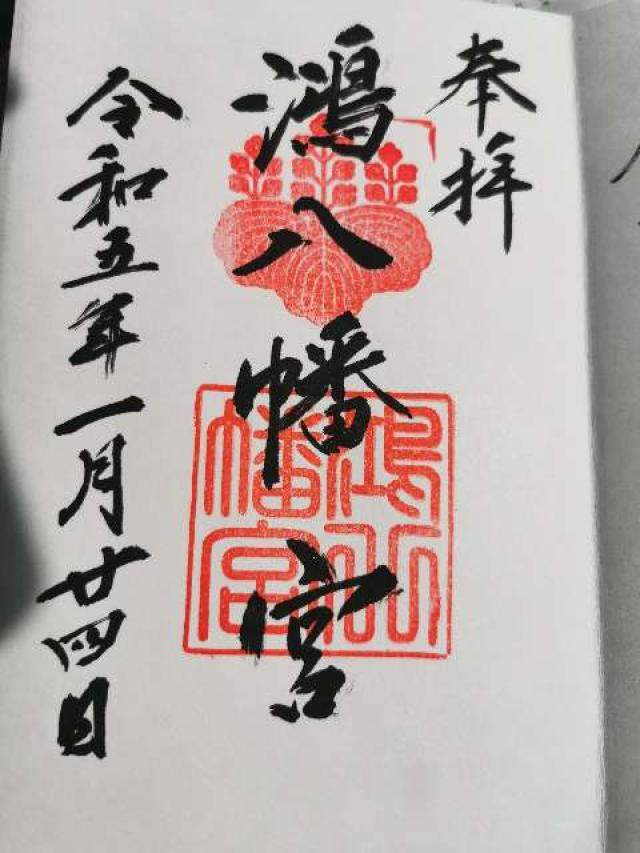 奉拝
鴻八幡宮
鴻八幡宮
令和五年一月廿四日